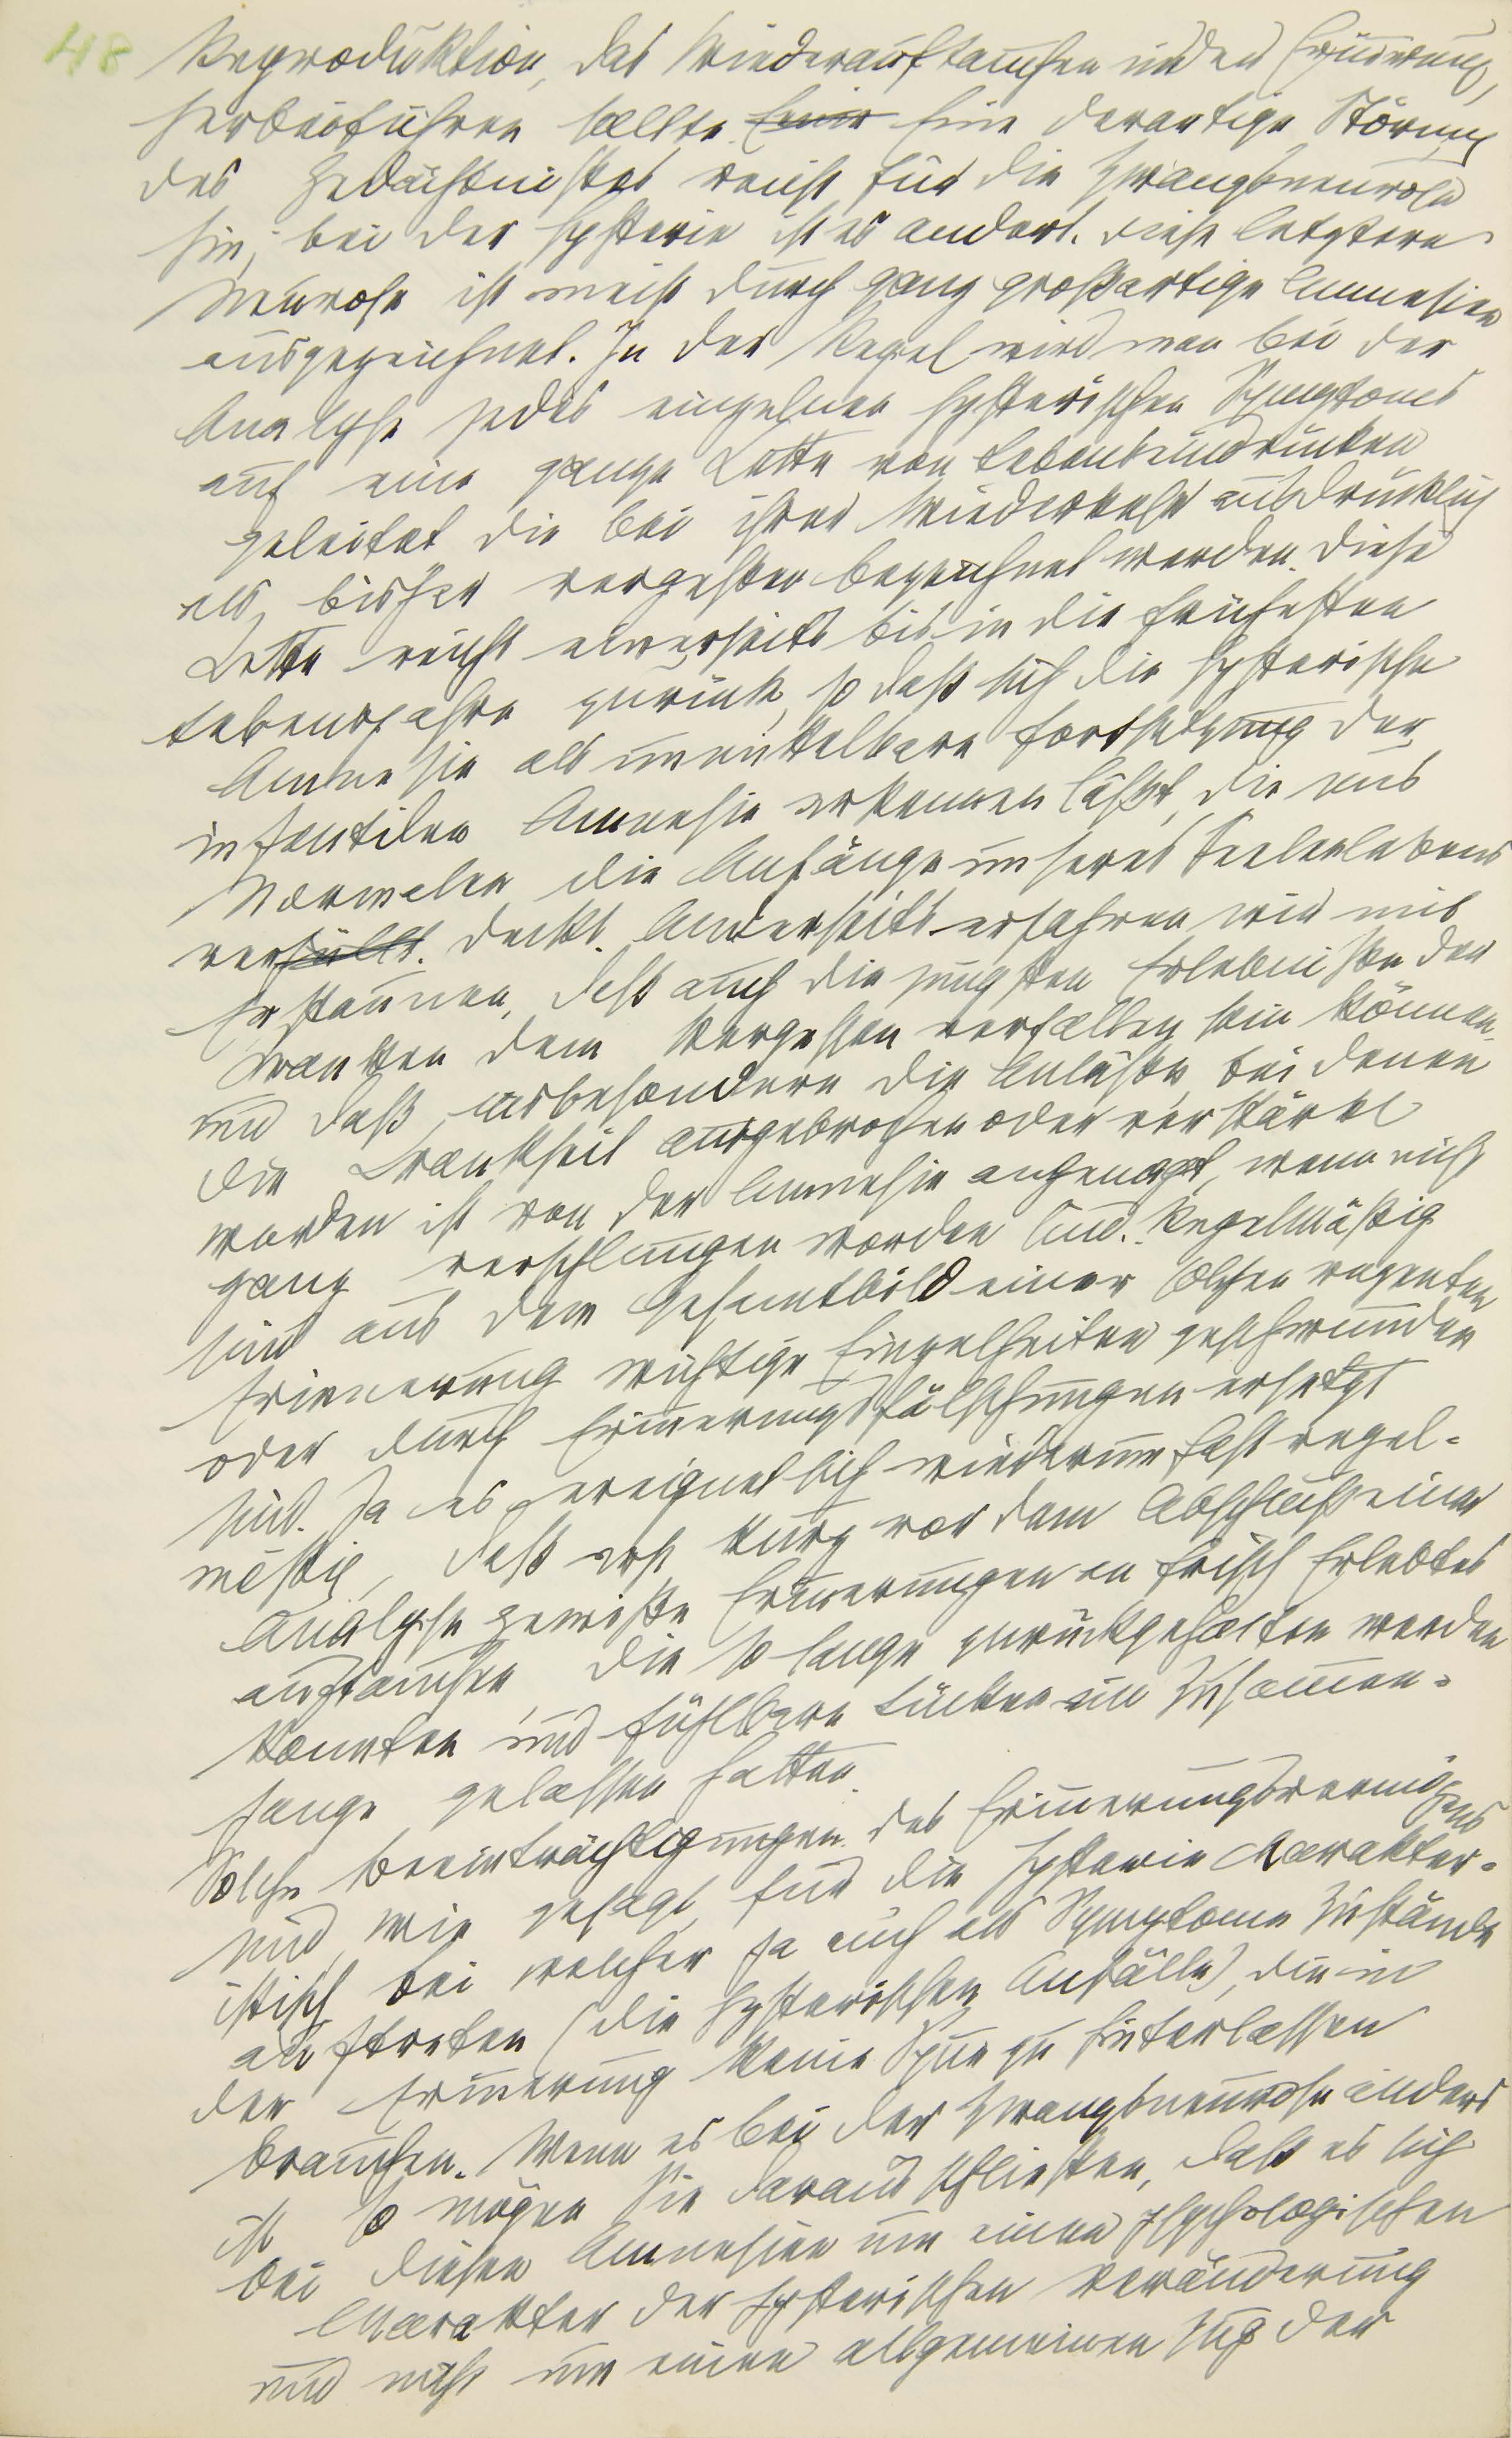 48
Reproduktion, das Wiederauftauchen in der Erinnerung,
herbeiführen sollte. Eine derartige Störung
des Gedächtnisses reicht für die Zwangsneurose
hin; bei der Hysterie ist es anders. Diese letztere
Neurose ist meist durch ganz großartige Amnesien
ausgezeichnet. In der Regel wird man bei der
Analyse jedes einzelnen hysterischen Symptoms
auf eine ganze Kette von Lebenseindrücken
geleitet die bei ihrer Wiederkehr ausdrücklich
als bisher vergessen bezeichnet werden. Diese
Kette reicht einerseits bis in die frühesten
Lebensjahre zurück, so daß sich die hysterische
Amnesie als unmittelbare Fortsetzung der
infantilen Amnesie erkennen läßt, die uns
Normalen die Anfänge unseres Seelenlebens
verhüllt. deckt. Anderseits erfahren wir mit
Erstaunen, daß auch die jüngsten Erlebnisse der
Kranken dem Vergessen verfallen sein können,
und daß insbesondere die Anlässe, bei denen
die Krankheit ausgebrochen oder verstärkt
worden ist von der Amnesie angenagt, wenn nicht
ganz verschlungen worden sind. Regelmäßig
sind aus dem Gesamtbild einer solchen rezenten
Erinnerung wichtige Einzelheiten geschwunden
oder durch Erinnerungsfälschungen ersetzt
sind. Ja es ereignet sich wiederum fast regel-
mäßig, daß erst kurz vor dem Abschluß einer
Analyse gewisse Erinnerungen an frisch Erlebtes
auftauchen die so lange zurückgehalten werden
konnten und fühlbare Lücken im Zusammen-
hange gelassen hatten.
Solche Beeinträchtigungen des Erinnerungsvermögens
sind, wie gesagt, für die Hysterie charakter-
istisch bei welcher ja auch als Symptome Zustände
auftreten (die hysterischen Anfälle), die in
der Erinnerung keine Spur zu hinterlassen
brauchen. Wenn es bei der Zwangsneurose anders
ist so mögen Sie daraus schließen, daß es sich
bei diesen Amnesien um einen psychologischen
Charakter der hysterischen Veränderung
und nicht um einen allgemeinen Zug der